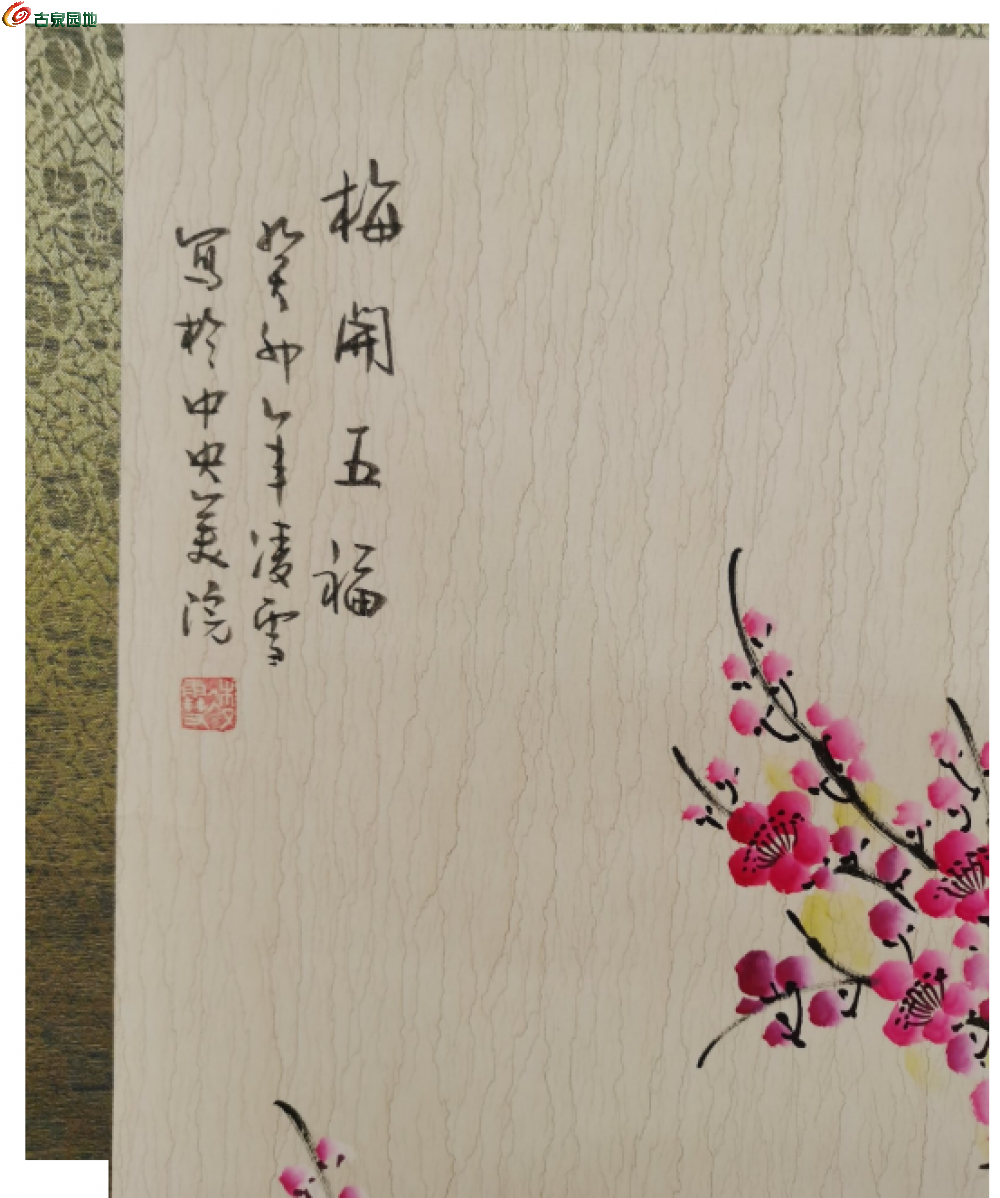 古泉园地
梅開五福
癸卯年凌雪
寫於中央美院